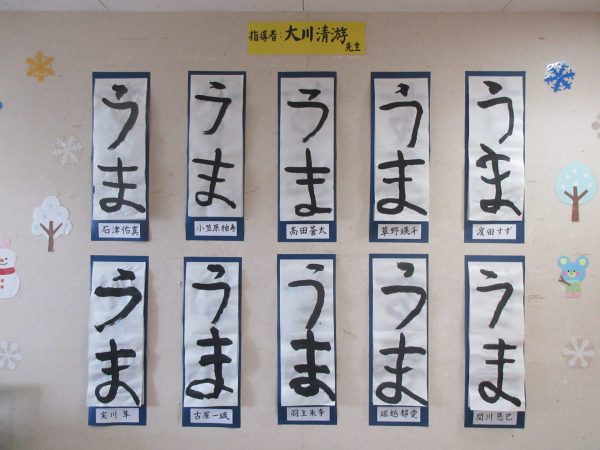 指導者:大川清游先生
うま
うま
うま
うま
うま
石津佑真
小笠原柏寿
高田蒼太
草野瑛斗
濱田すず
うま
うま
うま
うま
うま
実川隼
古屋一颯
羽生朱李
堀越都愛